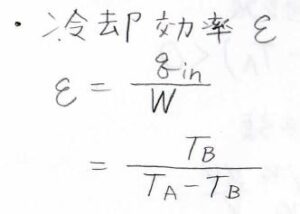 ・冷却効率 ε
ε = q_in / W
= T_B / (T_A - T_B)